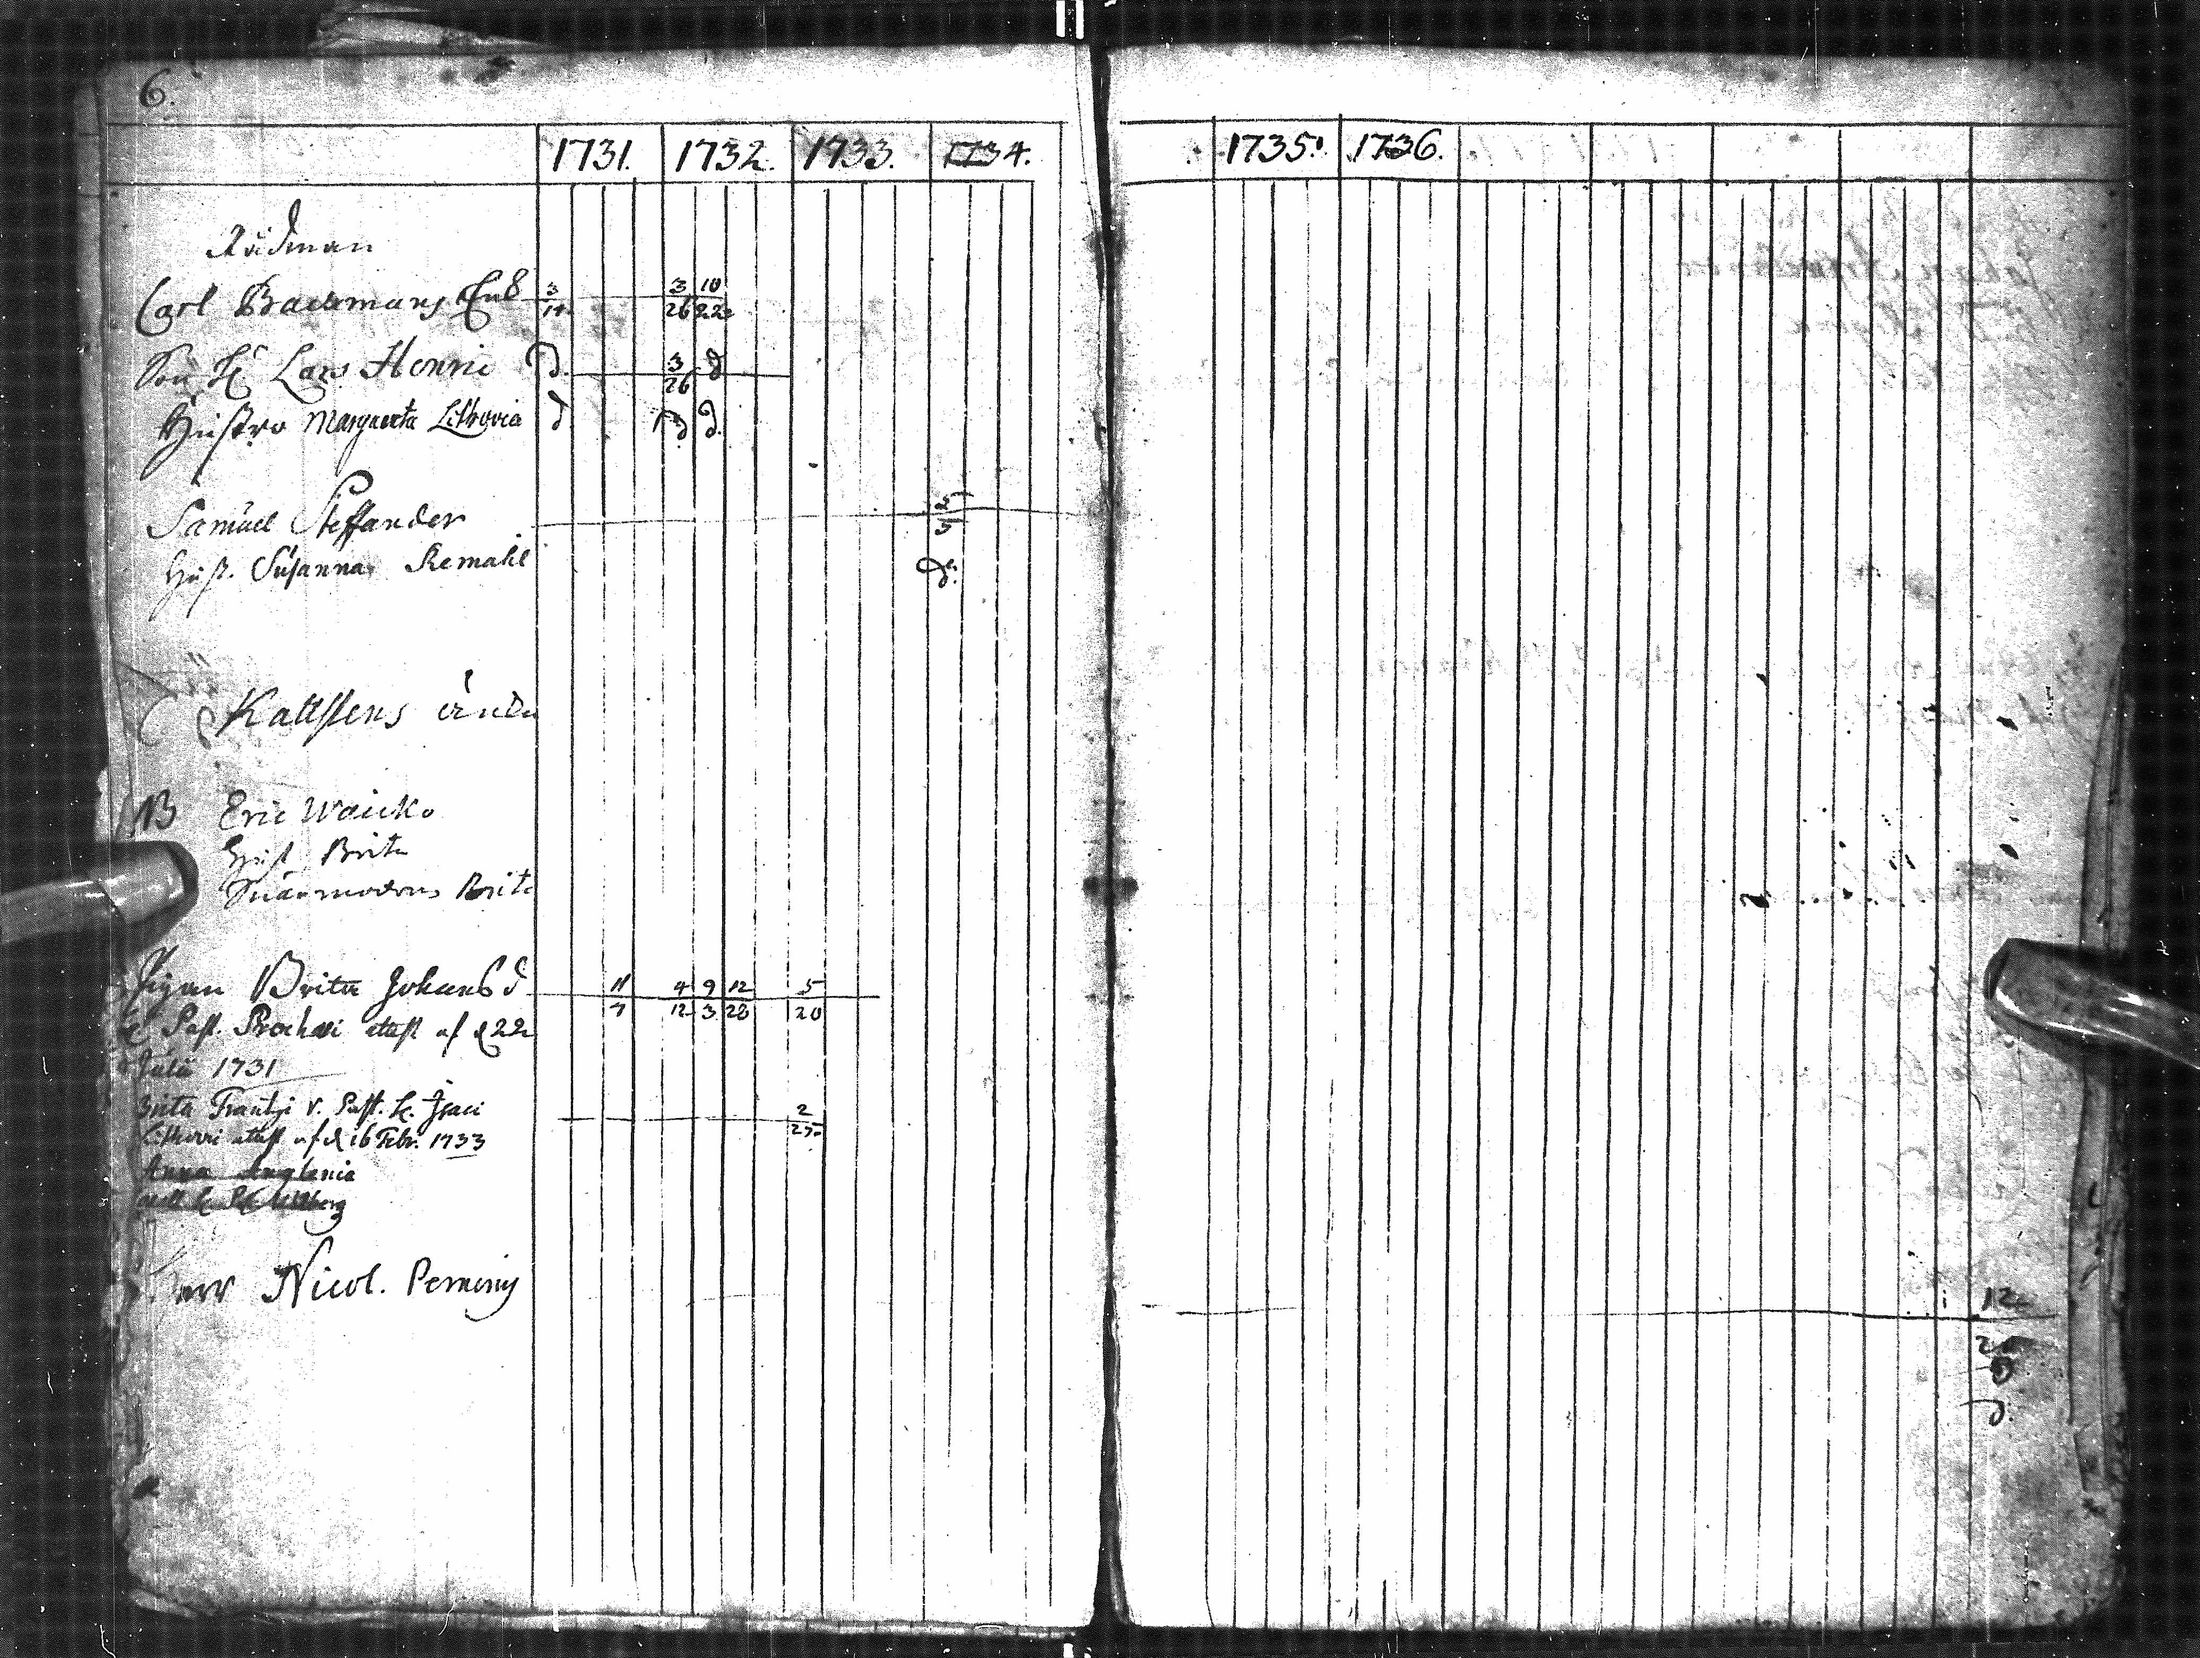 6.
1731. 1732. 1733. 1734. 1735. 1736.
Rådman
Carl Backmans Enk 3/14. 3/26 10/22
Son H. Lars Henric d. 3/26 d
Hustro Margareta Lithovia d d d.
Samuel Steffander 2/3
Hust. Susanna Remahl d:
Kallstens
NB Eric Waicko
Hust Brita
Swärmodren Brita
Pigan Brita Johansd 11/7 4/12 9/3 12/28 5/20
Past. Prochaei attest af d 22
Julii 1731
Brita Frantzi v. Past. H. Isaci 2/27
Lithovii attest af d 16 Febr. 1733
Anna Anglenia
Herr Nicol. Perminy 12
d.